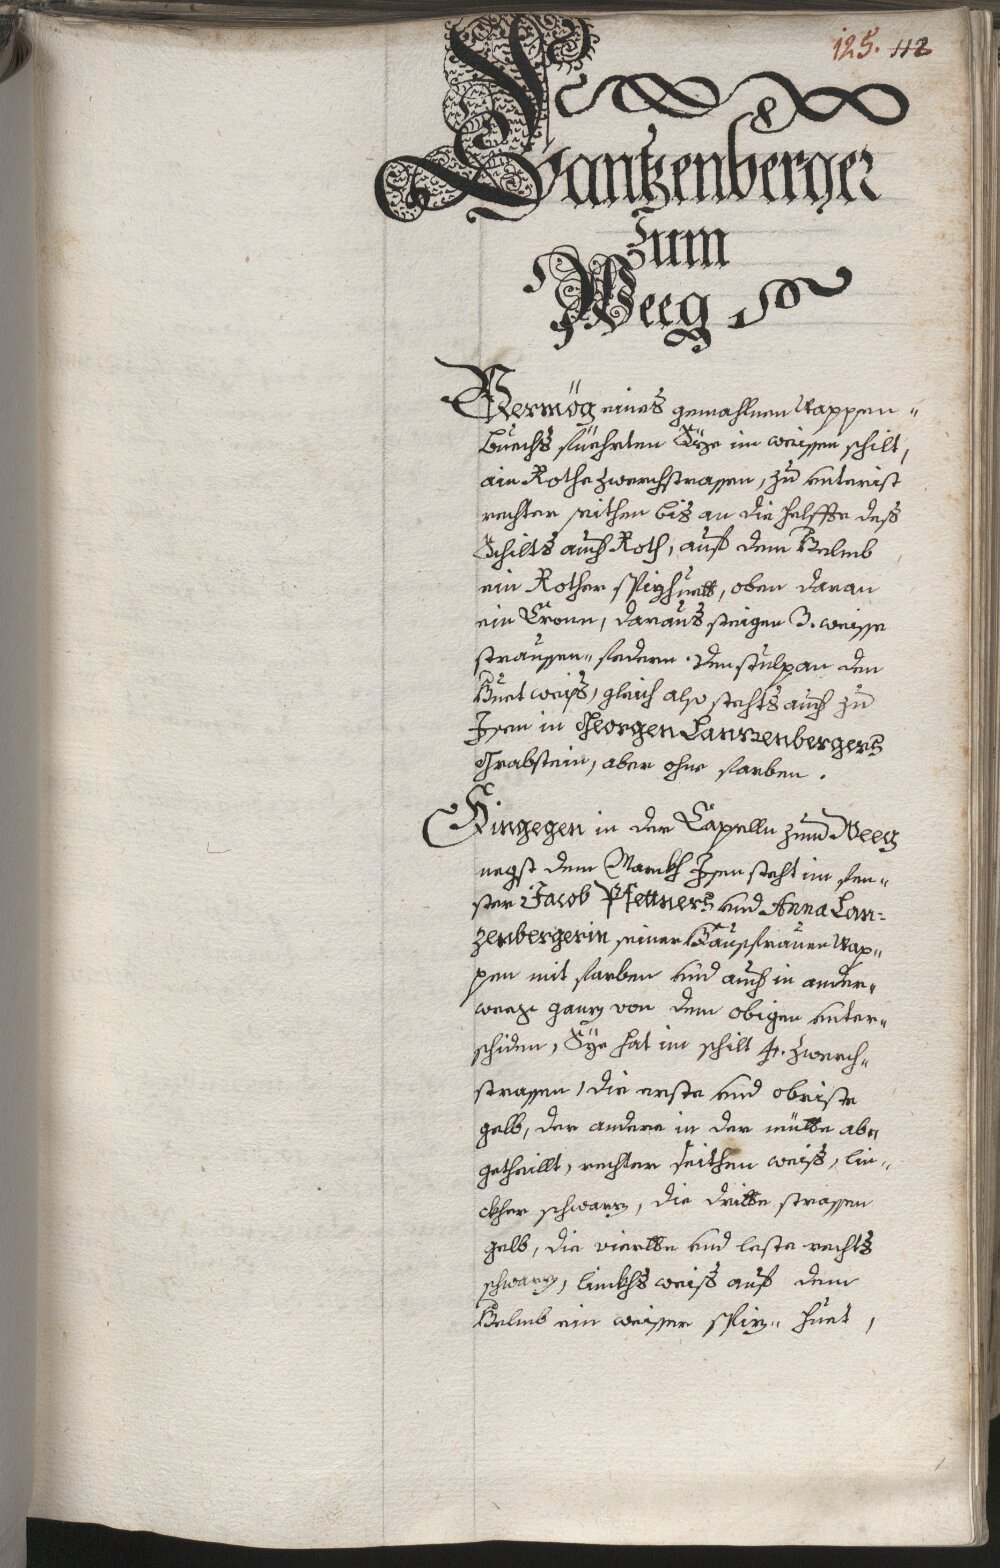 125. 112
Lantzenberger
zum
Weeg
Vermög eines gemahlnen Wappen„
Buechs füehrten Sye im weissen schilt,
ain Rothe zwerchstrassen, zu unterist
rechter seithen bis an die helffte deß
Schilts auch Roth, auf dem Helmb
ein Rother spizhuett, oben daran
ein Cronn, daraus steigen 3. weisse
straussen„ federn. Den stulp an dem
Huet weiß, gleich also stehts auch zu
Isen in Georgen Lantzenbergers
Grabstein, aber ohne farben.
Hingegen in der Capelln zum Weeg
negst dem Markh Isen steht im fen„
ster Jacob Pfettners und Anna Lan=
zenbergerin seiner Hausfrauen Wap„
pen mit farben und auch in ander„
weeg ganz von dem obigen unter„
schiden, Sye hat im schilt 4. zwerch„
strassen, die erste und obriste
gelb, der andere in der mitte ab„
getheillt, rechter seithen weiß, lin„
ckher schwarz, die dritte strassen
gelb, die viertte und leste rechts
schwarz, linckhs weiß auf dem
Helmb ein weisser spiz„ huet,